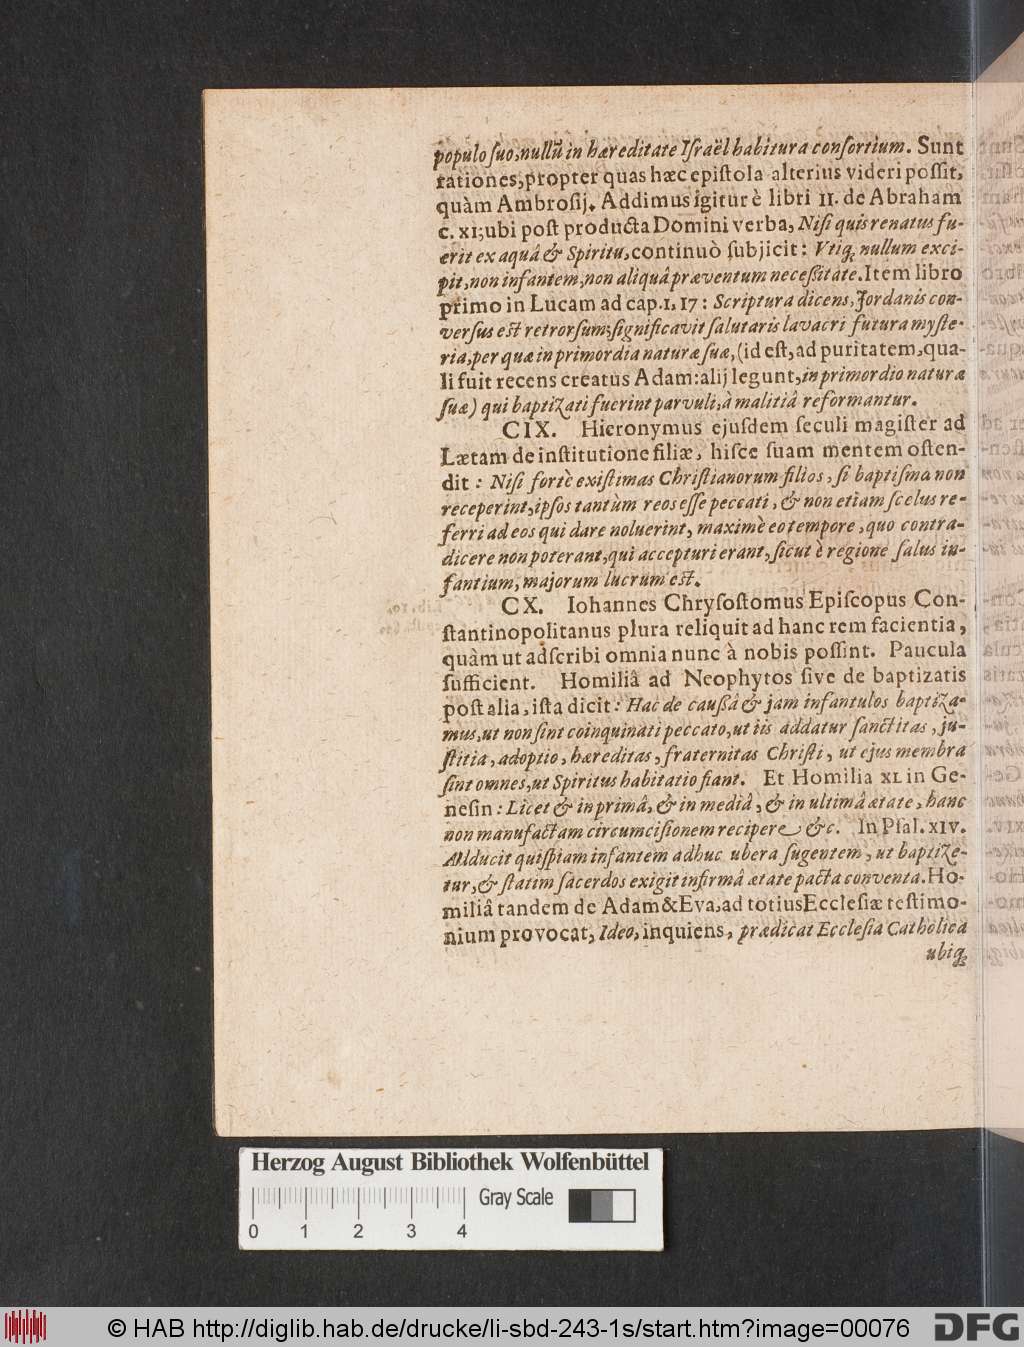 populo ſuo, nullũ in hæreditate Iſraël habitura conſortium. Sunt
rationes, propter quas hæc epiſtola alterius videri poſſit,
quàm Ambroſij. Addimus igitur è libri II. de Abraham
c. XI; ubi poſt producta Domini verba, Niſi quis renatus fu-
erit ex aquâ & Spiritu, continuò ſubjicit: Vtiq; nullum exci-
pit, non infantem, non aliquâ præventum neceſſitate. Item libro
primo in Lucam ad cap. 1, 17: Scriptura dicens, Jordanis con-
verſus eſt retrorſum; ſignificavit ſalutaris lavacri futura myſte-
ria, per quæ in primordia naturæ ſuæ, (id eſt, ad puritatem, qua-
li fuit recens creatus Adam: alij legunt, in primordio naturæ
ſuæ) qui baptizati fuerint parvuli, à malitiâ reformantur.
CIX. Hieronymus ejuſdem ſeculi magiſter ad
Lætam de inſtitutione filiæ, hiſce ſuam mentem oſten-
dit: Niſi fortè exiſtimas Chriſtianorum filios, ſi baptiſma non
receperint, ipſos tantùm reos eſſe peccati, & non etiam ſcelus re-
ferri ad eos qui dare noluerint, maximè eo tempore, quo contra-
dicere non poterant, qui accepturi erant, ſicut è regione ſalus in-
fantium, majorum lucrum eſt.
CX. Iohannes Chryſoſtomus Epiſcopus Con-
ſtantinopolitanus plura reliquit ad hanc rem facientia,
quàm ut adſcribi omnia nunc à nobis poſſint. Paucula
ſufficient. Homiliâ ad Neophytos ſive de baptizatis
poſt alia, iſta dicit: Hac de cauſſâ & jam infantulos baptiza-
mus, ut non ſint coinquinati peccato, ut iis addatur ſanctitas, ju-
ſtitia, adoptio, hæreditas, fraternitas Chriſti, ut ejus membra
ſint omnes, ut Spiritus habitatio fiant. Et Homilia XL in Ge-
neſin: Licet & in primâ, & in mediâ, & in ultimâ ætate, hanc
non manufactam circumciſionem recipere &c. In Pſal. XIV.
Adducit quiſpiam infantem adhuc ubera ſugentem, ut baptize-
tur, & ſtatim ſacerdos exigit infirmâ ætate pacta conventa. Ho-
miliâ tandem de Adam & Eva, ad totius Eccleſiæ teſtimo-
nium provocat, Ideo, inquiens, prædicat Eccleſia Catholica
ubiq;
Herzog August Bibliothek Wolfenbüttel
Gray Scale
0 1 2 3 4
© HAB http://diglib.hab.de/drucke/li-sbd-243-1s/start.htm?image=00076
DFG